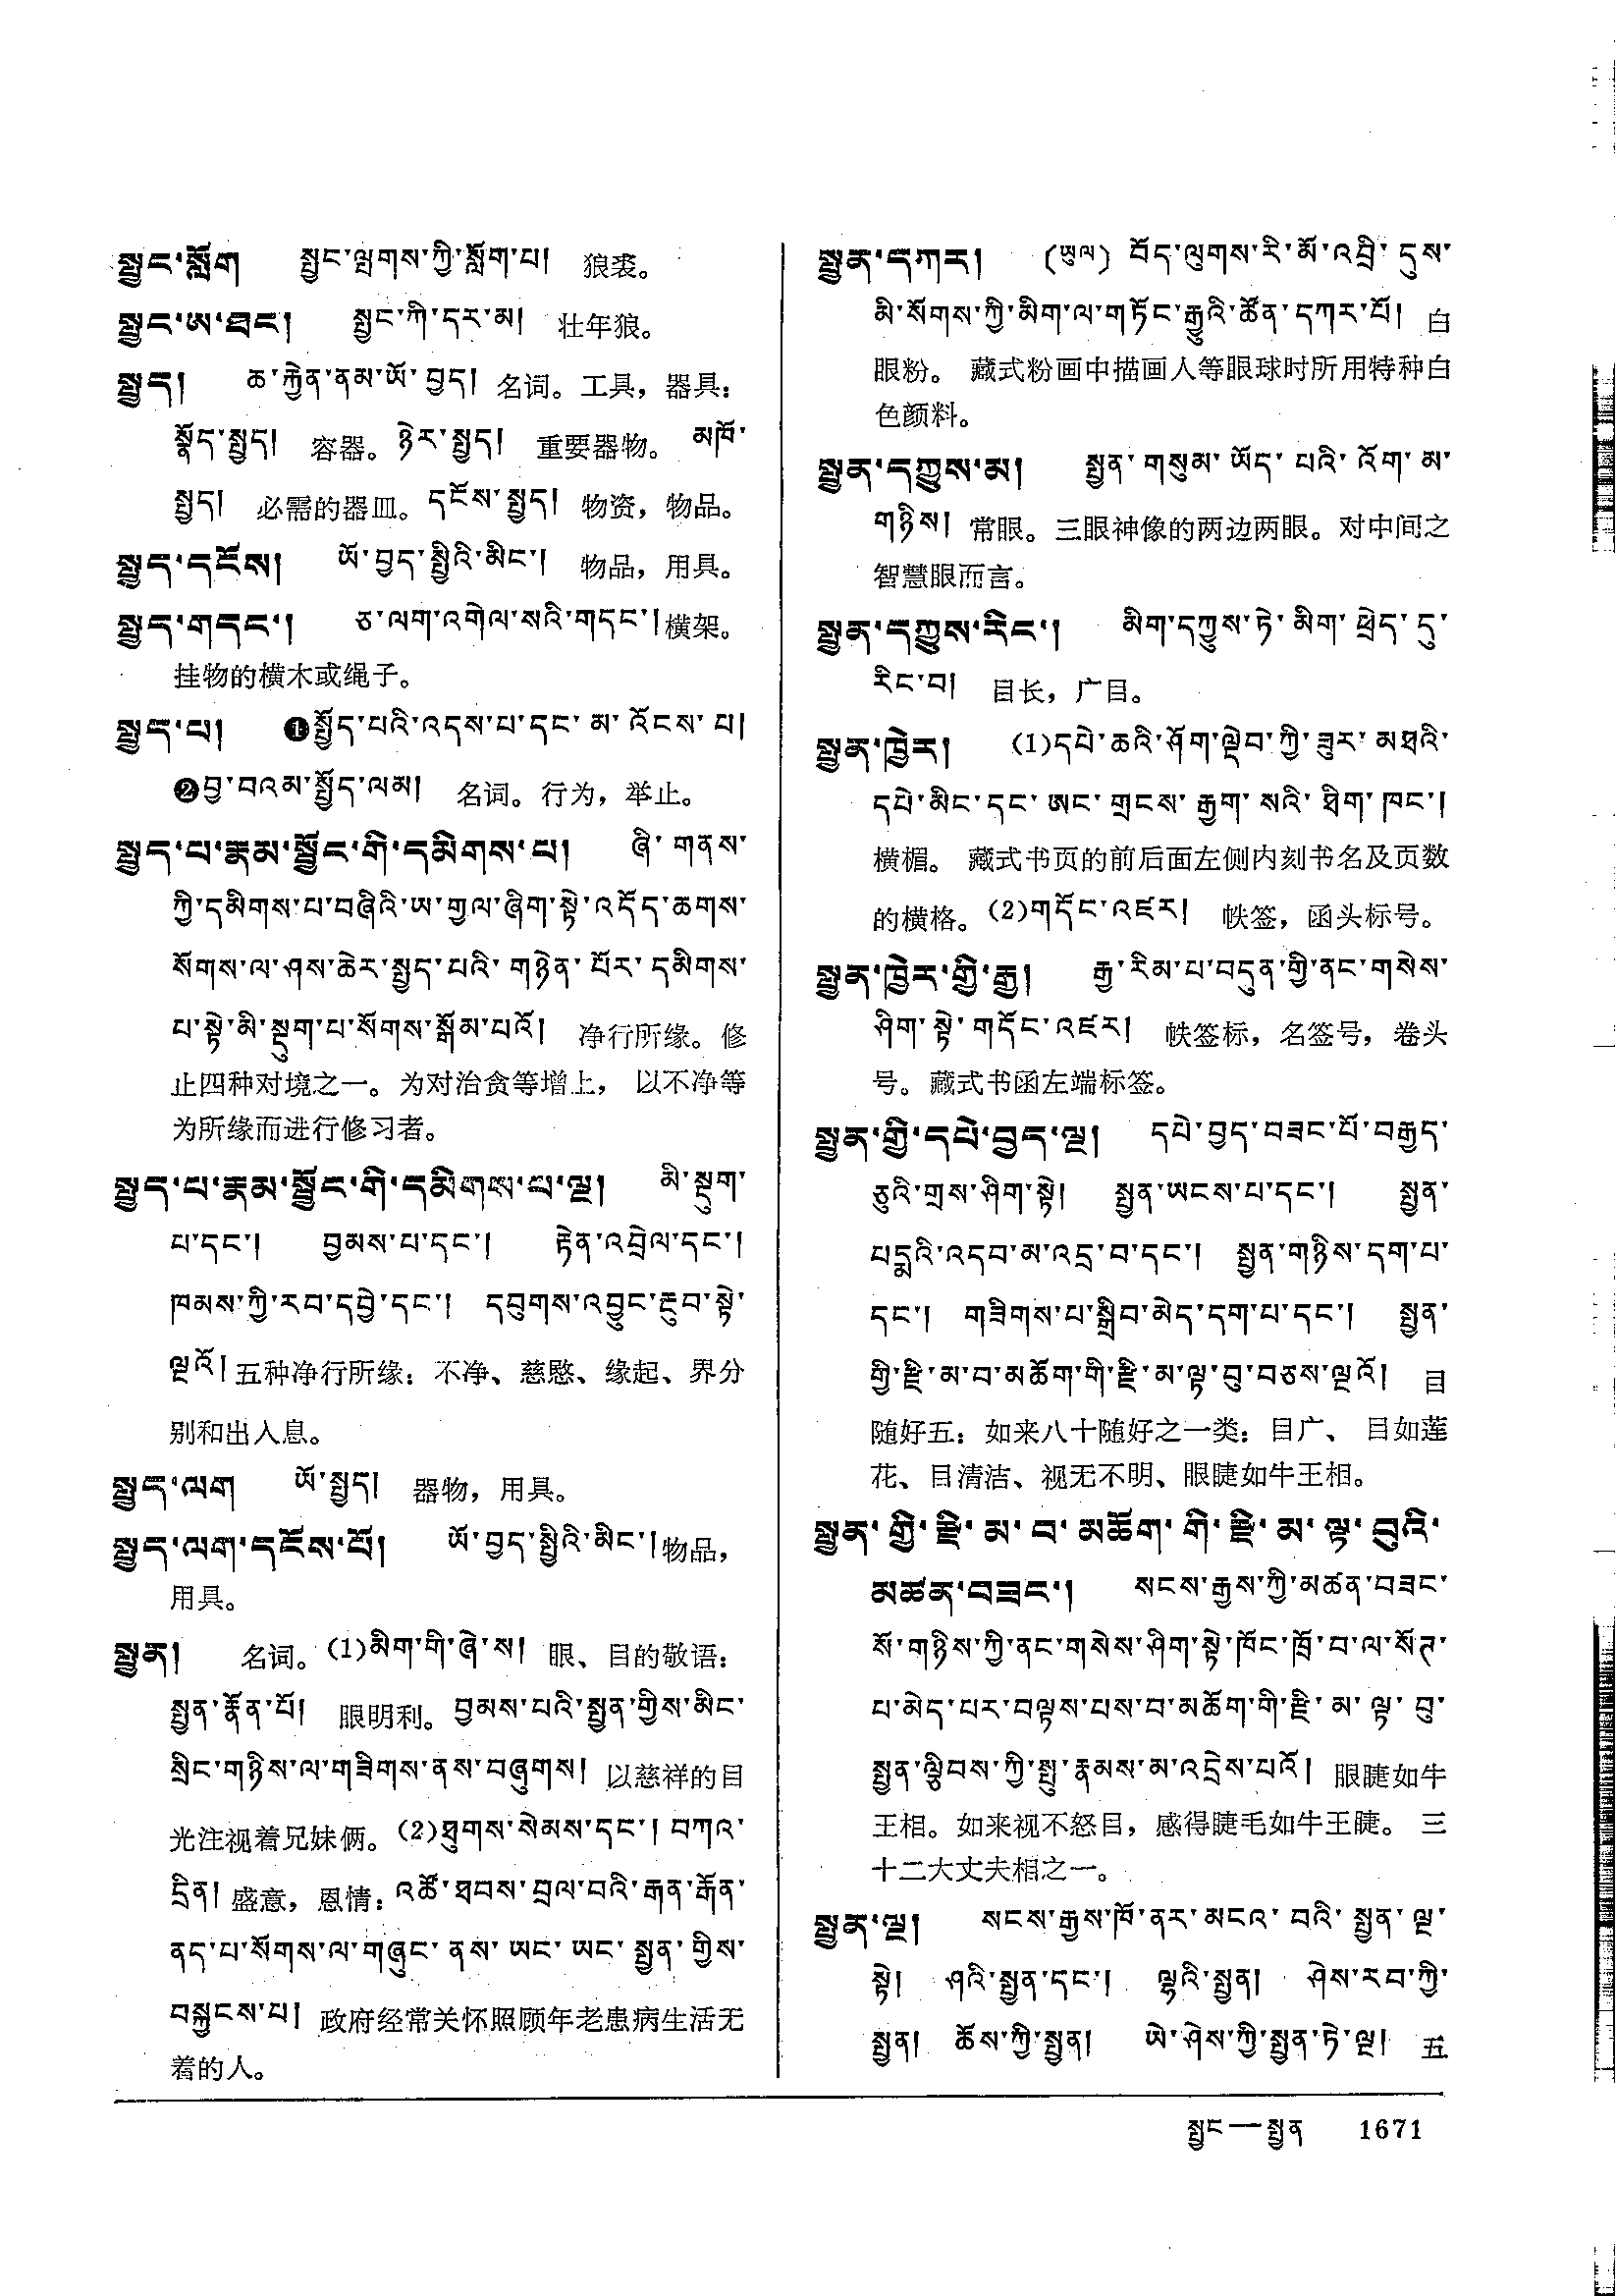 སྤྱང་སློག སྤྱང་ལྤགས་ཀྱི་སློག་པ། 狼裘。
སྤྱང་ཨ་ཐང་། སྤྱང་ཀི་དར་མ། 壮年狼。
སྤྱད། ཆ་རྐྱེན་ནམ་ཡོ་བྱད། 名词。工具，器具：
སྣོད་སྤྱད། 容器。ཉེར་སྤྱད། 重要器物。མཁོ་
སྤྱད། 必需的器皿。དངོས་སྤྱད། 物资，物品。
སྤྱད་དངོས། ཡོ་བྱད་སྤྱིའི་མིང་། 物品，用具。
སྤྱད་གདང་། ཅ་ལག་འགེལ་སའི་གདང་། 横架。
挂物的横木或绳子。
སྤྱད་པ། ❶སྤྱོད་པའི་འདས་པ་དང་མ་འོངས་པ།
❷བྱ་བའམ་སྤྱོད་ལམ། 名词。行为，举止。
སྤྱད་པ་རྣམ་སྦྱོང་གི་དམིགས་པ། ཞི་གནས་
ཀྱི་དམིགས་པ་བཞིའི་ཨ་གྱལ་ཞིག་སྟེ་འདོད་ཆགས་
སོགས་ལ་ཤས་ཆེར་སྤྱད་པའི་གཉེན་པོར་དམིགས་
པ་སྟེ་མི་སྡུག་པ་སོགས་སྒོམ་པའོ། 净行所缘。修
止四种对境之一。为对治贪等增上，以不净等
为所缘而进行修习者。
སྤྱད་པ་རྣམ་སྦྱོང་གི་དམིགས་པ་ལྔ། མི་སྡུག་
པ་དང་། བྱམས་པ་དང་། རྟེན་འབྲེལ་དང་།
ཁམས་ཀྱི་རབ་དབྱེ་དང་། དབུགས་འབྱུང་རྔུབ་སྟེ་
ལྔའོ། 五种净行所缘：不净、慈愍、缘起、界分
别和出入息。
སྤྱད་ལག ཡོ་སྤྱད། 器物，用具。
སྤྱད་ལག་དངོས་པོ། ཡོ་བྱད་སྤྱིའི་མིང་། 物品，
用具。
སྤྱན། 名词。(1)མིག་གི་ཞེ་ས། 眼、目的敬语：
སྤྱན་རྣོན་པོ། 眼明利。བྱམས་པའི་སྤྱན་གྱིས་མིང་
སྲིང་གཉིས་ལ་གཟིགས་ནས་བཞུགས། 以慈祥的目
光注视着兄妹俩。(2)ཐུགས་སེམས་དང་། བཀའ་
དྲིན། 盛意，恩情：འཚོ་ཐབས་བྲལ་བའི་རྒན་རྒོན་
ནད་པ་སོགས་ལ་གཞུང་ནས་ཡང་ཡང་སྤྱན་གྱིས་
བསྐྱངས་པ། 政府经常关怀照顾年老患病生活无
着的人。
སྤྱན་དཀར། (ཡུལ) བོད་ལུགས་རི་མོ་འབྲི་དུས་
མི་སོགས་ཀྱི་མིག་ལ་གཏོང་རྒྱུའི་ཚོན་དཀར་པོ། 白
眼粉。藏式粉画中描画人等眼球时所用特种白
色颜料。
སྤྱན་དཀྱུས་མ། སྤྱན་གསུམ་ཡོད་པའི་འོག་མ་
གཉིས། 常眼。三眼神像的两边两眼。对中间之
智慧眼而言。
སྤྱན་དཀྱུས་རིང་། མིག་དཀྱུས་ཏེ་མིག་ཕྲེད་དུ་
རིང་བ། 目长，广目。
སྤྱན་ཁྱེར། (1)དཔེ་ཆའི་ཤོག་ལྡེབ་ཀྱི་ཟུར་མཐའི་
དཔེ་མིང་དང་ཨང་གྲངས་རྒྱག་སའི་ཐིག་ཁང་།
横楣。藏式书页的前后面左侧内刻书名及页数
的横格。(2)གདོང་འཛར། 帙签，函头标号。
སྤྱན་ཁྱེར་གྱི་རྒྱ། རྒྱ་རིམ་པ་བདུན་གྱི་ནང་གསེས་
ཤིག་སྟེ་གདོང་འཛར། 帙签标，名签号，卷头
号。藏式书函左端标签。
སྤྱན་གྱི་དཔེ་བྱད་ལྔ། དཔེ་བྱད་བཟང་པོ་བརྒྱད་
ཅུའི་གྲས་ཤིག་སྟེ། སྤྱན་ཡངས་པ་དང་། སྤྱན་
པདྨའི་འདབ་མ་འདྲ་བ་དང་། སྤྱན་གཉིས་དག་པ་
དང་། གཟིགས་པ་སྒྲིབ་མེད་དག་པ་དང་། སྤྱན་
གྱི་རྫི་མ་བ་མཆོག་གི་རྫི་མ་ལྟ་བུ་བཅས་ལྔའོ། 目
随好五：如来八十随好之一类：目广、目如莲
花、目清洁、视无不明、眼睫如牛王相。
སྤྱན་གྱི་རྫི་མ་བ་མཆོག་གི་རྫི་མ་ལྟ་བུའི་
མཚན་བཟང་། སངས་རྒྱས་ཀྱི་མཚན་བཟང་
སོ་གཉིས་ཀྱི་ནང་གསེས་ཤིག་སྟེ་ཁོང་ཁྲོ་བ་ལ་སོཊ་
པ་མེད་པར་བལྟས་པས་བ་མཆོག་གི་རྫི་མ་ལྟ་བུ་
སྤྱན་ལྕིབས་ཀྱི་སྤུ་རྣམས་མ་འདྲེས་པའོ། 眼睫如牛
王相。如来视不怒目，感得睫毛如牛王睫。三
十二大丈夫相之一。
སྤྱན་ལྔ། སངས་རྒྱས་ཁོ་ནར་མངའ་བའི་སྤྱན་ལྔ་
སྟེ། ཤའི་སྤྱན་དང་། ལྷའི་སྤྱན། ཤེས་རབ་ཀྱི་
སྤྱན། ཆོས་ཀྱི་སྤྱན། ཡེ་ཤེས་ཀྱི་སྤྱན་ཏེ་ལྔ། 五
སྤྱང—སྤྱན 1671